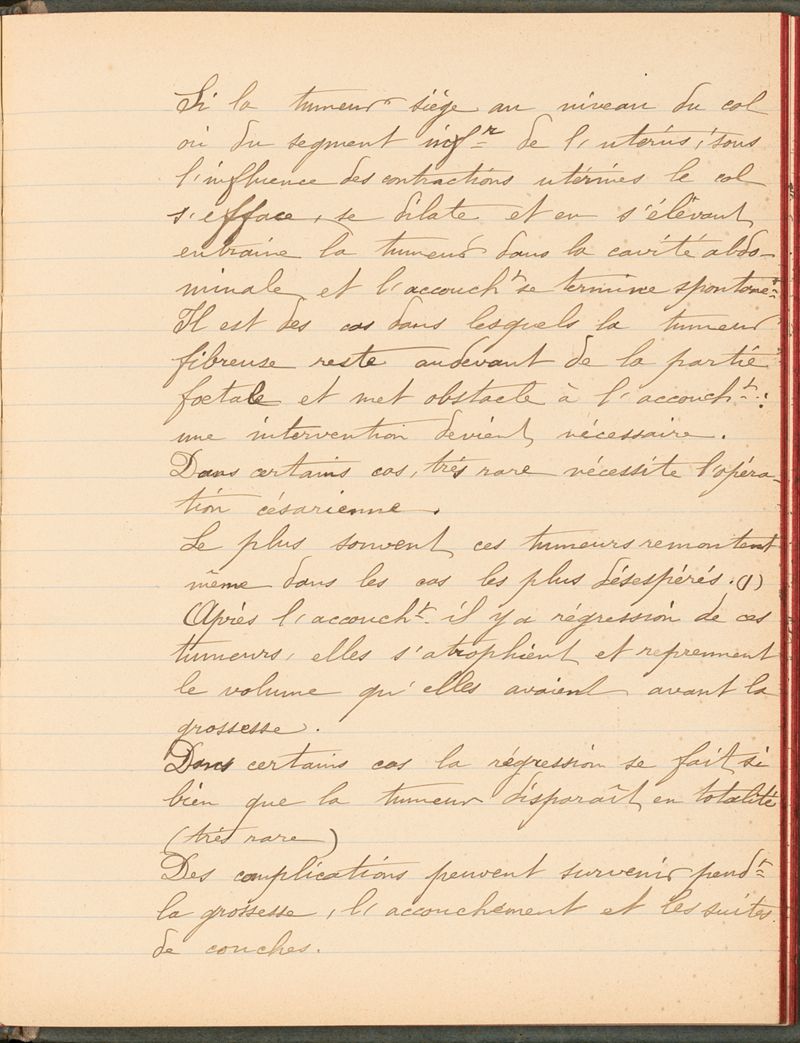 Si la tumeur siége au niveau du col
ou du segment infr de l'utérus, sous
l'influence des contractions utérines le col
s'efface, se dilate et en s'élèvant
entraine la tumeur dans la cavité abdo-
minale et l'accoucht se termine spontanet
Il est des cas dans lesquels la tumeur
fibreuse reste audevant de la partie
foetale et met obstacle à l'accoucht:
une intervention devient nécessaire.
Dans certains cas, très rare nécessite l'opéra-
tion césarienne.
Le plus souvent ces tumeurs remontent
même dans les cas les plus désespérés. (1)
Après l'accoucht. il y a régression de ces
tumeurs, elles s'atrophient et reprennent
le volume qu'elles avaient avant la
grossesse.
Dans certains cas la régression se fait si
bien que la tumeur disparaît en totalité
(très rare)
Des complications peuvent survenir pendt
la grossesse, l'accouchement et les suites
de couches.